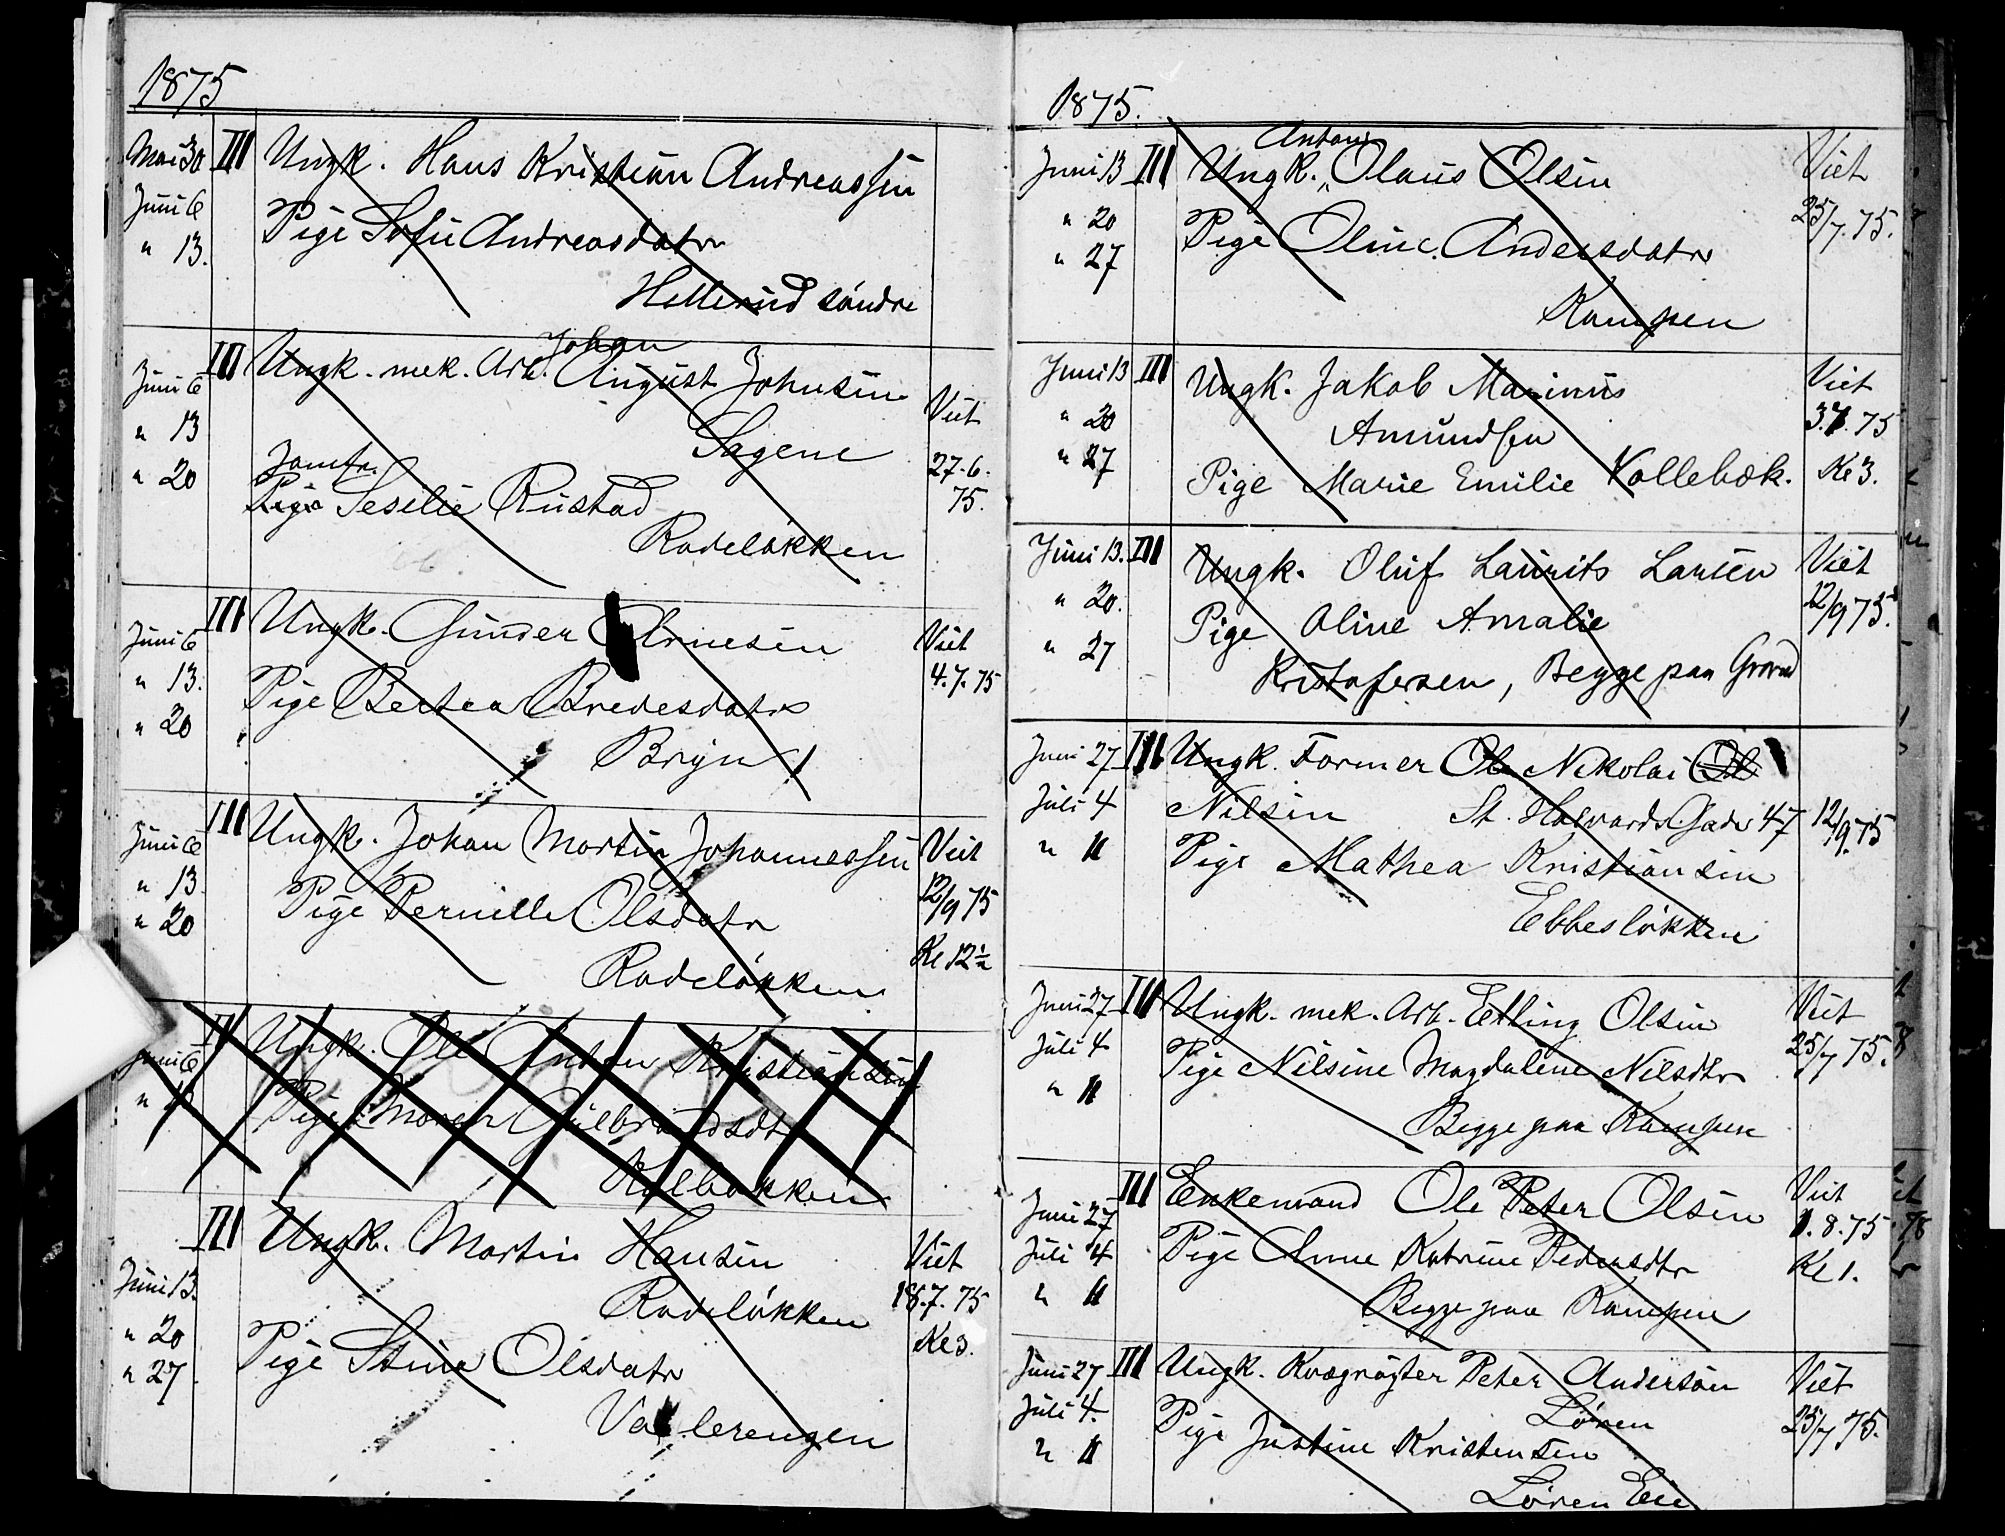 1875
Mai 30 III Ungk. Hans Kristian Andreassen
Juni 6 Pige Sofie Andreasdatr
" 13. Hellerud söndre
Johan
Juni 6 III Ungk. mek. Arb. August Johnsen
" 13 Sagene Viet
Jomfr. 27.6.
" 20 Pige Sesilie Rustad 75.
Rodeløkken
Juni 6 III Ungk. Gunder Arnesen Viet
" 13. Pige Bertea Bredesdatr 4.7.75
" 20 Bryn
Juni 6 III Ungk. Johan Martin Johannessen Viet
" 13. Pige Pernille Olsdatr 12/9 75
" 20 Rodeløkken Kl 12½
Juni 6 II Ungk. Ole Anton Kristiansen
" Pige Maren Gulbrandsdt
Kalbakken
III Ungk. Martin Hansen Viet
Juni 13. Rodeløkken 18.7.75
" 20 Pige Stine Olsdatr Kl 3.
" 27 Valerengen
1875.
Anton
Juni 13 III Ungk. " Olaus Olsen Viet
" 20 Pige Oline Andersdatr 25/7.75.
" 27 Kampen
Juni 13 III Ungk. Jakob Marinus Viet
" 20 Amundsen 3.7.75
" 27 Pige Marie Emilie Kollebæk. Kl 3.
Juni 13. III Ungk. Oluf Laurits Larsen Viet
" 20. Pige Oline Amalie 12/9 75.
" 27 Kristofersen, Begge paa Grorud
Juni 27 III Ungk. Former Ole Nikolai Ol
Juli 4 Nilsen St. Halvards Gade 47 12/9.75
" 11 Pige Mathea Kristiansen
Ebbesløkken
Juni 27 III Ungk. mek. Arb. Edling Olsen Viet
Juli 4 Pige Nilsine Magdalene Nilsdtr 25/7 75.
" 11 Begge paa Kampen
Juni 27 III Enkemand Ole Peter Olsen Viet
Juli 4 Pige Anne Katrine Pedersdtr 1.8.75
" 11 Begge paa Kampen Kl 1.
Juni 27 III Ungk. Kvægrøgter Peter Anderson Viet
Juli 4. Løren 25/7 75.
" 11 Pige Justine Kristensen
Løren Eie